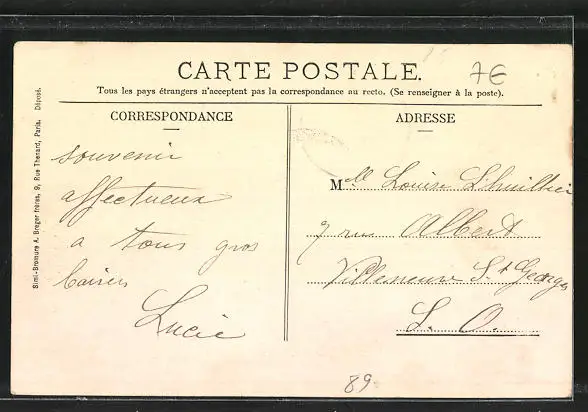 CARTE POSTALE.
7€
Tous les pays étrangers n'acceptent pas la correspondance au recto. (Se renseigner à la poste).
CORRESPONDANCE
souvenir
affectueux
a tous gros
baisers
Lucie
ADRESSE
Mlle Louise Lhuillier
7 rue Albert
Villeneuve St Georges
S. O.
89
Simi-Bromure A. Breger frères, 9, Rue Thenard, Paris. Déposé.